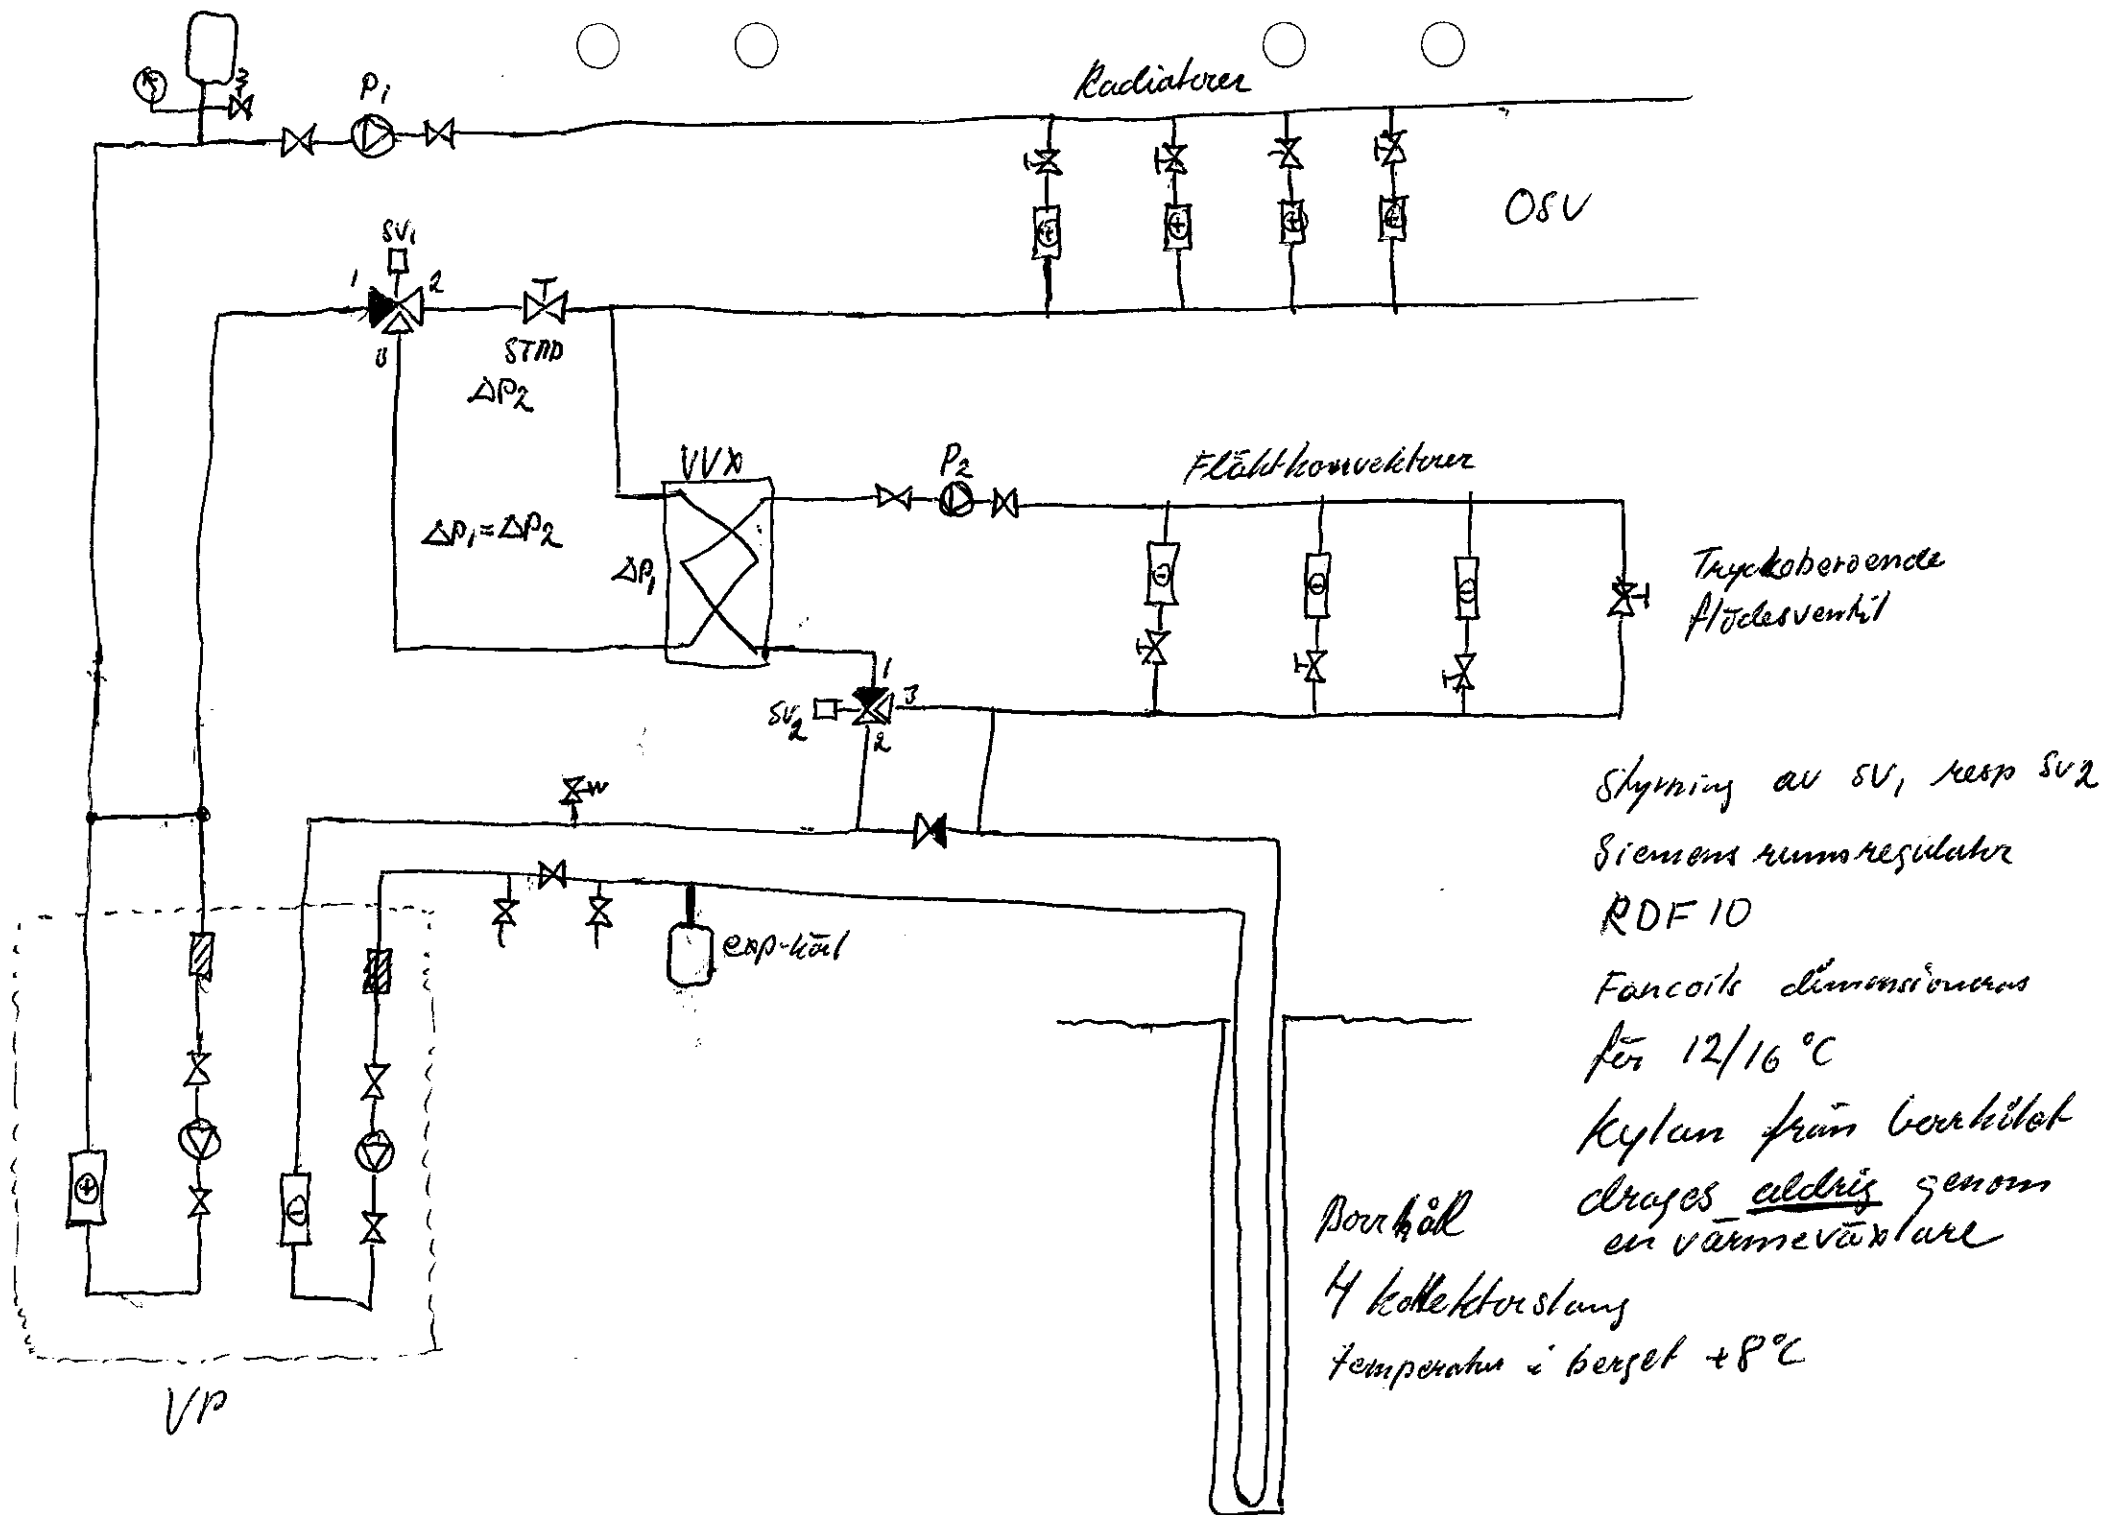 P1
Radiatorer
OSV
SV1
1
2
3
STAD
ΔP2
VVX
P2
Fläktkonvektorer
ΔP1=ΔP2
ΔP1
Tryckoberoende
flödesventil
1
3
SV2
2
Styrning av SV1 resp SV2
Siemens rumsregulator
RDF 10
exp-kärl
Fancoils dimensioneras
för 12/16 °C
Kylan från borrhålet
drages aldrig genom
en värmeväxlare
Borrhål
4 kollektorslang
temperatur i berget +8°C
VP